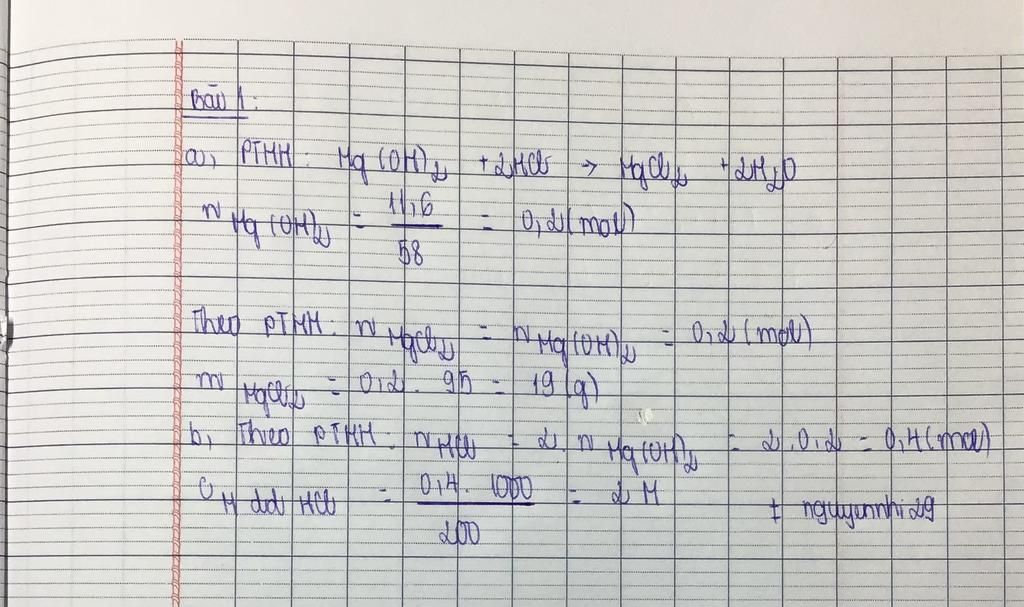 Bài 1:
a, PTHH: Mg(OH)₂ + 2HCl → MgCl₂ + 2H₂O
n Mg(OH)₂ = 11,6 / 58 = 0,2 (mol)
Theo PTHH: n MgCl₂ = n Mg(OH)₂ = 0,2 (mol)
m MgCl₂ = 0,2 . 95 = 19 (g)
b, Theo PTHH: n HCl = 2. n Mg(OH)₂ = 2 . 0,2 = 0,4 (mol)
C M dd HCl = 0,4 . 1000 / 200 = 2 M
± nguyennhi29